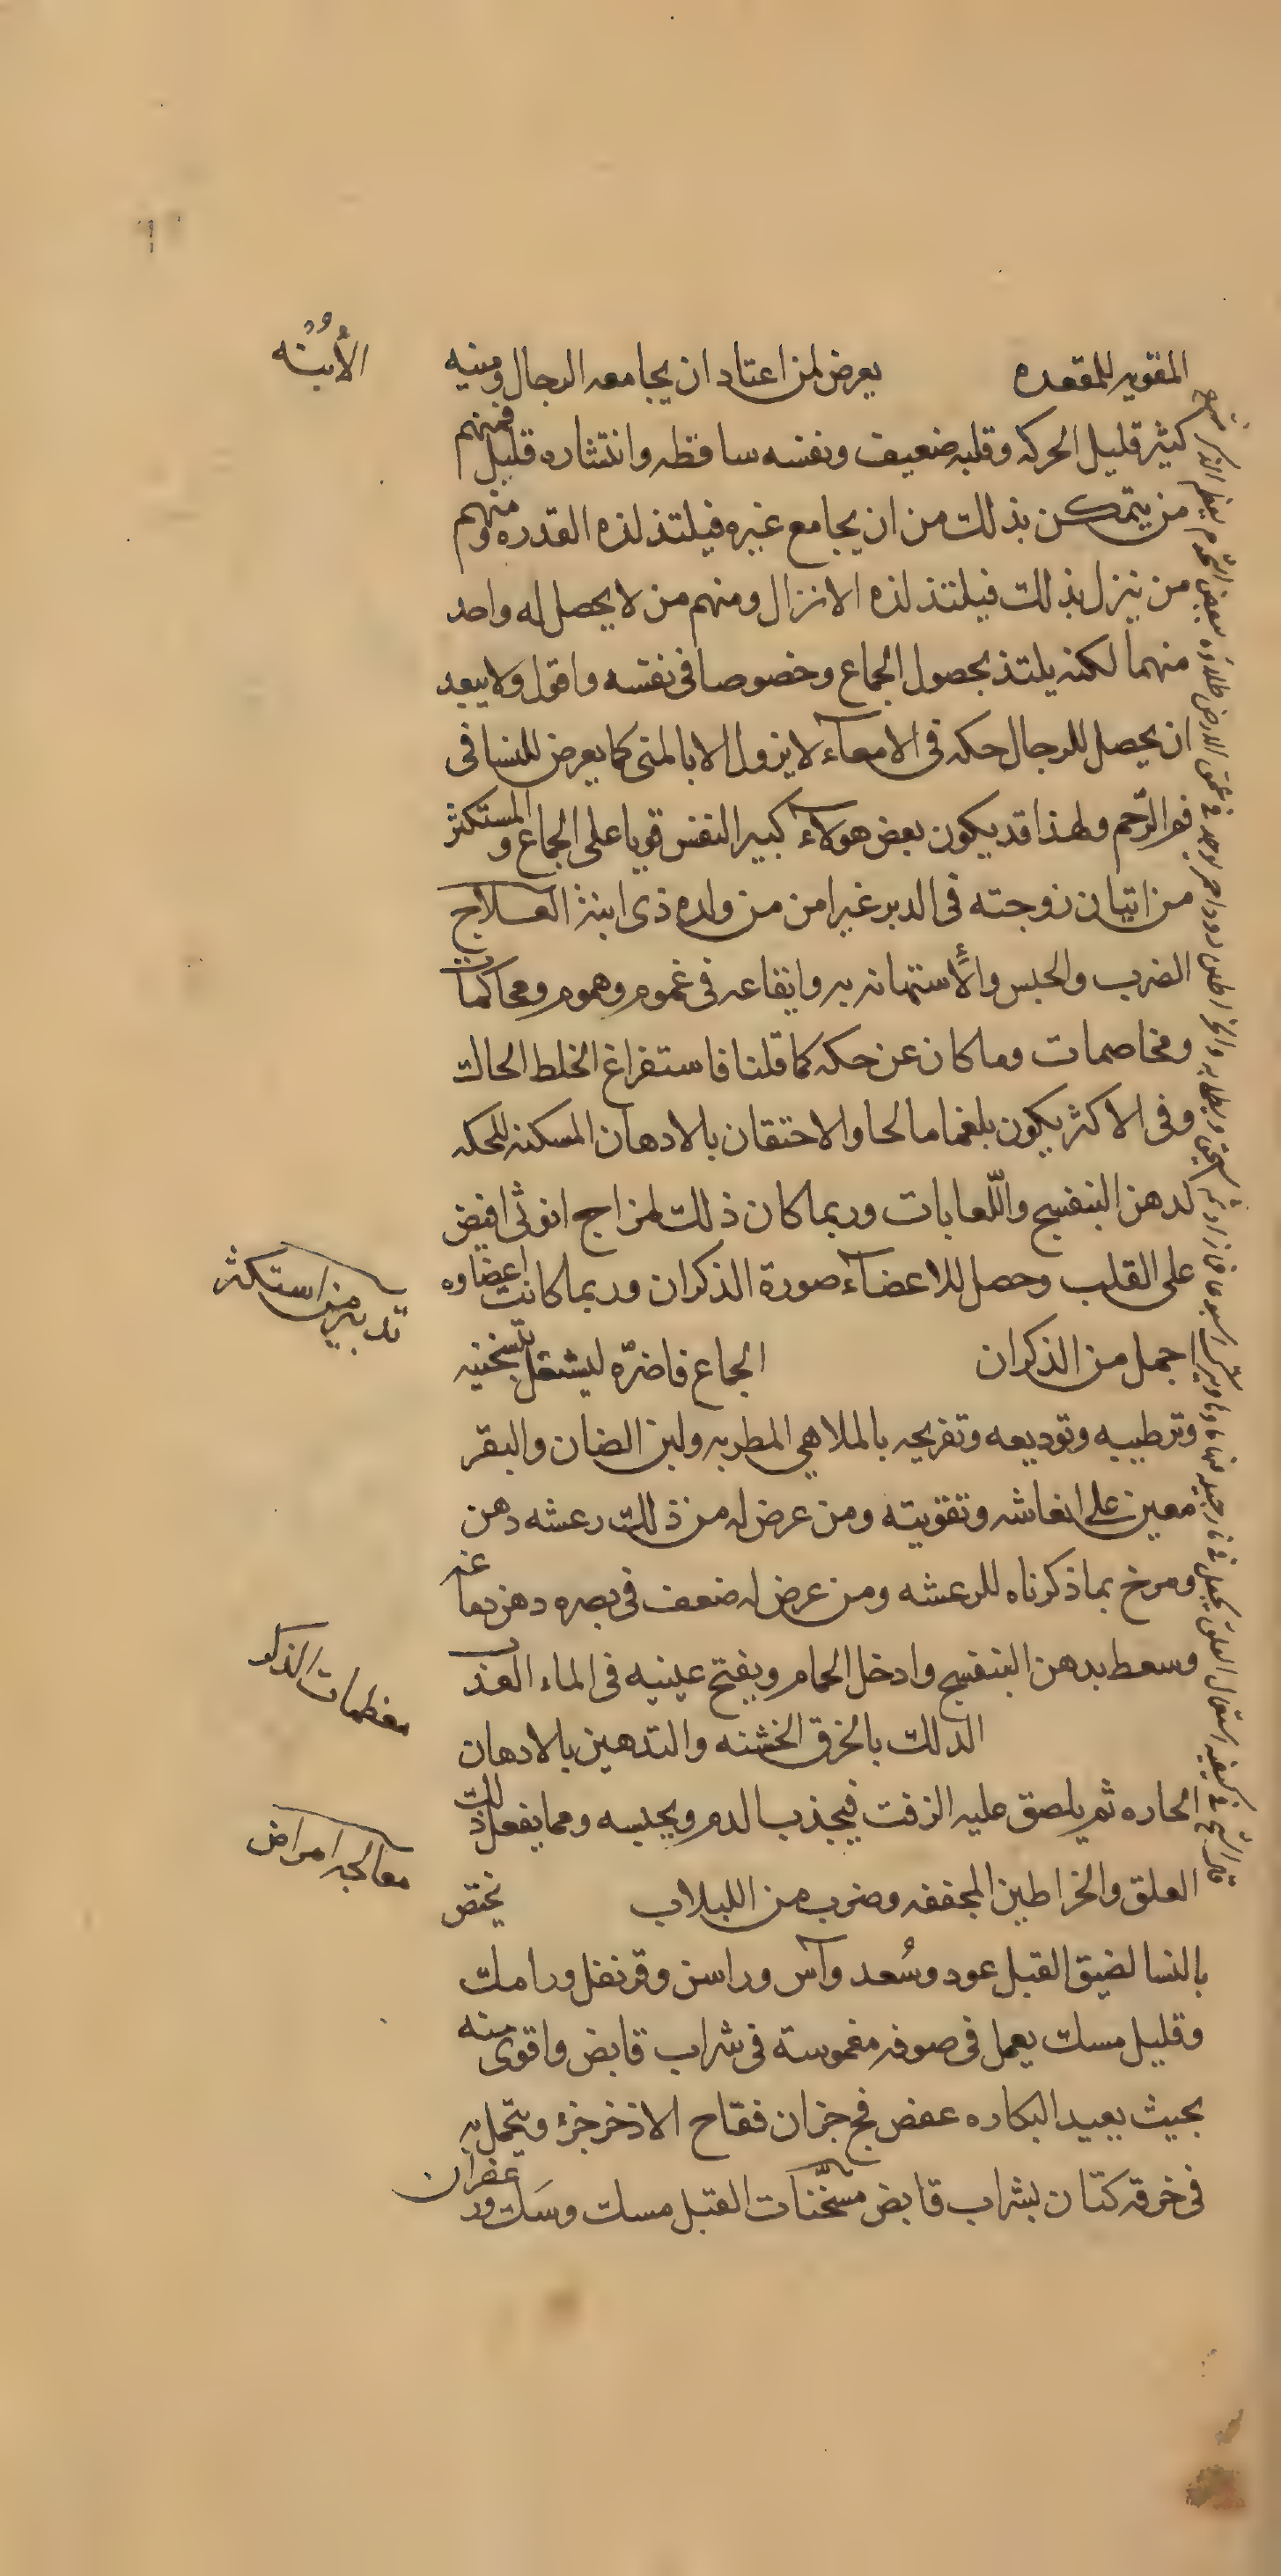 الأبنه
المقويه للمقعده يعرض لمن اعتاد ان يجامعه الرجال ومنيه
كثير قليل الحركه وقلبه ضعيف ونفسه ساقطه وانتشاره قليل فمنهم
من يتمكن بذلك من ان يجامع غيره فيلتذ لذه القدره ومنهم
من ينزل بذلك فيلتذ لذه الانزال ومنهم من لا يحصل له واحد
منهما لكنه يلتذ بحصول الجماع وخصوصا في نفسه واقول ولا يبعد
ان يحصل للرجال حكه في الامعآء لا يزول الا بالمني كما يعرض للنسا في
فم الرّحم ولهذا قد يكون بعض هولآء كبير النفس قويا على الجماع والمستكثر
من اتيان زوجته في الدبر غير امن من ولده ذي ابنة العلاج
الضرب والحبس والأستهانه به وايقاعه في غموم وهموم ومحاكمات
ومخاصمات وما كان عن حكه كما قلنا فاستفراغ الخلط الحاك
وفي الاكثر يكون بلغما مالحا والاحتقان بالادهان المسكنه للحكه
لدهن البنفسج واللّعابات وربما كان ذلك لمزاج انوثي افيض
على القلب وحصل للاعضآء صورة الذكران وربما كانت اعضاوه
تدبير من استكثر
اجمل من الذكران الجماع فاضرّه ليشتغل بتسخينه
وترطيبه وتوديعه وتفريحه بالملاهي المطربه ولبن الضان والبقر
معين على انعاشه وتقويته ومن عرض له من ذلك رعشه دهن
ومرخ بما ذكرناه للرعشه ومن عرض له ضعف في بصره دهن دماغه
وسعط بدهن البنفسج وادخل الحمام ويفتح عينيه في الماء العذب
معظمات الذكر
الدلك بالخرق الخشنه والتدهين بالادهان
الحاره ثم يلصق عليه الزفت فيجذب الدم ويحبسه ومما يفعل ذلك
معالجه امراض
العلق والخراطين المجففه وضرب من اللبلاب تختص
بالنسا لضيق القبل عود وسُعد وآس وراسن وقرنفل ورامك
وقليل مسك يعمل في صوفه مغموسة في شراب قابض واقوى منه
بحيث يعيد البكاره عفص فج جزان فقاح الاذخر جزء ويتحمل به
في خرقه كتان بشراب قابض مسخّنات القبل مسك وسَك وزعفران